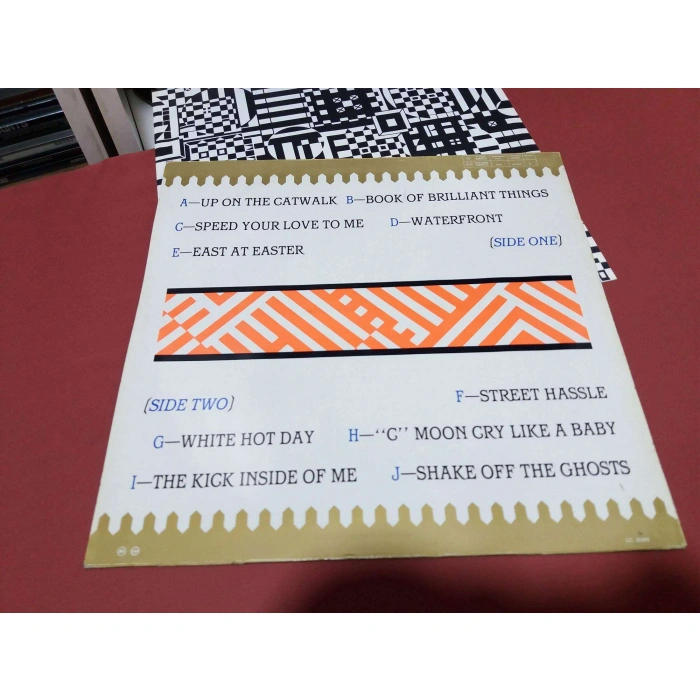 A—UP ON THE CATWALK B—BOOK OF BRILLIANT THINGS
C—SPEED YOUR LOVE TO ME D—WATERFRONT
E—EAST AT EASTER (SIDE ONE)
(SIDE TWO) F—STREET HASSLE
G—WHITE HOT DAY H—“G” MOON CRY LIKE A BABY
I—THE KICK INSIDE OF ME J—SHAKE OFF THE GHOSTS